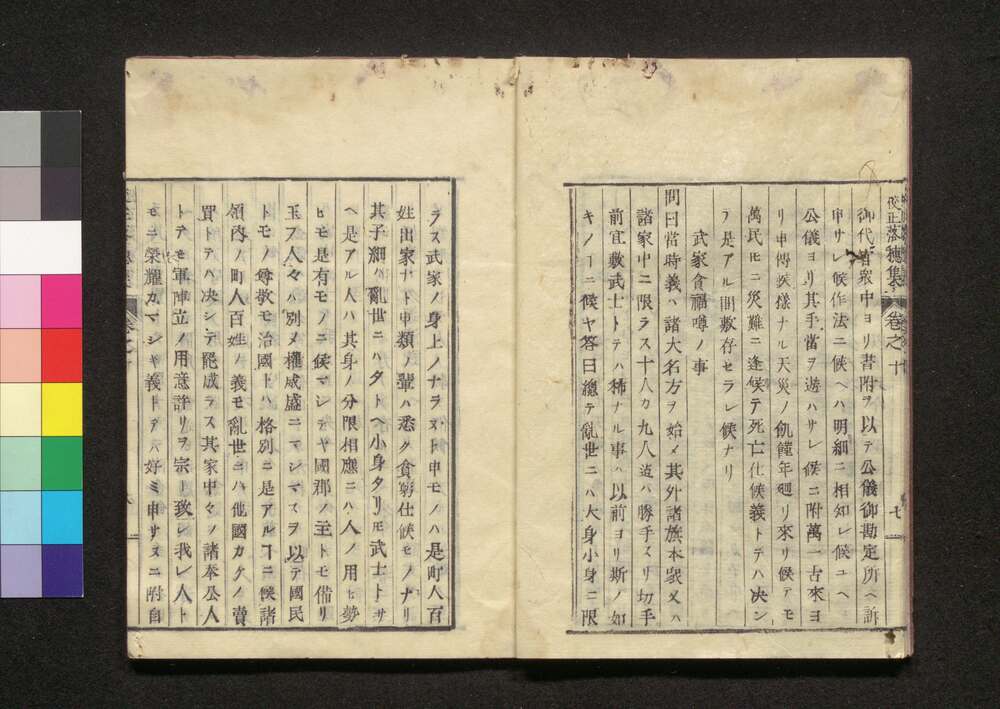 校正落穂集 卷之十 七
御代官衆中ヨリ昔附ヲ以テ公儀御勘定所ヘ訴
申サレ候作法ニ候ヘハ明細ニ相知レ候ユヘ
公儀ヨリ其手當ヲ遊ハサレ候ニ附萬一古來ヨ
リ申傳候樣ナル天災ノ飢饉年廻リ來リ候アモ
萬民ヒニ災難ニ逢候テ死亡仕候義トテハ决ン
テ是アル間敷存セラレ候ナリ
武家貪福噂ノ事
問曰當時義ハ諸大名方ヲ始メ其外諸旗本衆又ハ
諸家中ニ限ラス十人カ九人迄ハ勝手スリ切手
前宜敷武士トテハ稀ナル事ハ以前ヨリ斯ノ如
キノヿニ候ヤ答曰總テ亂世ニハ大身小身ニ限
ラス武家ノ身上ノナラヌト申モノハ是町人百
姓出家ナト申類ノ輩ハ悉ク貪窮仕候モノナリ
其子細ハ亂世ニハタトヘ小身タリ𪜈武士トサ
ヘ是アル人ハ其身ノ分限相應ニハ人ノ用ヒ勢
ヒモ是有モノニ候マシテヤ國郡ノ主トモ備リ
玉フ人々ハ別メ權威盛ニマシマスヲ以テ國民
トモノ尊敬モ治國トハ格別ニ是アルヿニ候諸
領内ノ町人百姓ノ義モ亂世ニハ他國カケノ賣
買トテハ决シテ罷成ラス其家中々ノ諸奉公人
トテモ軍陣立ノ用意詳リヲ宗ト致シ我レ人ト
モニ榮耀カマシキ義トテハ好ミ申サスニ附自